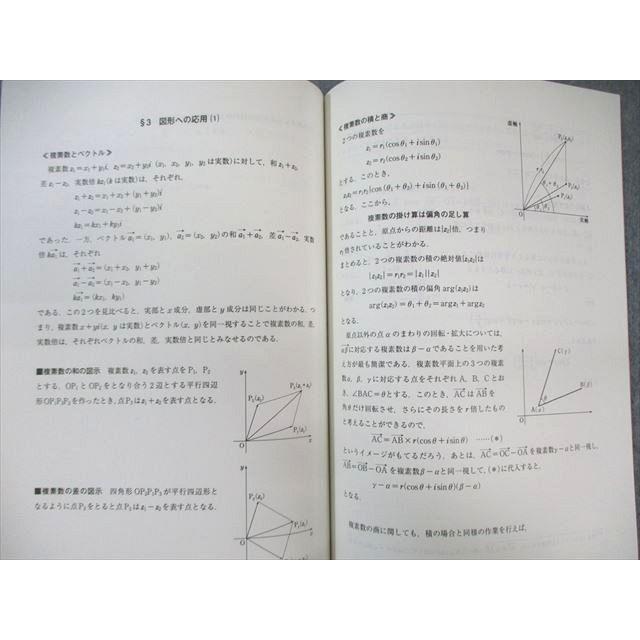 §3 図形への応用(1)
≪複素数とベクトル≫
複素数z₁=x₁+y₁i, z₂=x₂+y₂i (x₁, x₂, y₁, y₂は実数)に対して, 和z₁+z₂,
差z₁−z₂, 実数倍kz₁(kは実数)は, それぞれ,
z₁+z₂=x₁+x₂+(y₁+y₂)i
z₁−z₂=x₁−x₂+(y₁−y₂)i
kz₁=kx₁+ky₁i
であった. 一方, ベクトルa₁→=(x₁, y₁), a₂→=(x₂, y₂)の和a₁→+a₂→, 差a₁→−a₂→, 実数
倍ka₁→は, それぞれ
a₁→+a₂→=(x₁+x₂, y₁+y₂)
a₁→−a₂→=(x₁−x₂, y₁−y₂)
ka₁→=(kx₁, ky₁)
である. この2つを見比べると, 実部とx成分, 虚部とy成分は同じことがわかる. つ
まり, 複素数x+yi(x, yは実数)とベクトル(x, y)を同一視することで複素数の和, 差,
実数倍は, それぞれベクトルの和, 差, 実数倍と同じとみなせるのである.
■複素数の和の図示 複素数z₁, z₂を表す点をP₁, P₂
とする. OP₁とOP₂をとなり合う2辺とする平行四辺
形OP₁P₃P₂を作ったとき, 点P₃はz₁+z₂を表す点となる.
y
P₂(z₂)
P₃(z₁+z₂)
P₁(z₁)
O
x
■複素数の差の図示 四角形OP₂P₁P₃が平行四辺形と
なるように点P₃をとると点P₃はz₁−z₂を表す点となる.
y
P₂(z₂)
P₁(z₁)
O
x
≪複素数の積と商≫
2つの複素数を
z₁=r₁(cosθ₁+isinθ₁)
z₂=r₂(cosθ₂+isinθ₂)
とする. このとき,
z₁z₂=r₁r₂{cos(θ₁+θ₂)+isin(θ₁+θ₂)}
となる. ここから,
複素数の掛け算は偏角の足し算
であることと, 原点からの距離は|z₂|倍, つまり
r₂倍されていることがわかる.
まとめると, 2つの複素数の積の絶対値|z₁z₂|は
|z₁z₂|=r₁r₂=|z₁||z₂|
となり, 2つの複素数の積の偏角arg(z₁z₂)は
arg(z₁z₂)=θ₁+θ₂=argz₁+argz₂
となる.
虚軸
O
実軸
原点以外の点αのまわりの回転・拡大については,
AB→に対応する複素数はβ−αであることを用いた考
え方が最も簡潔である. 複素数平面上の3つの複素
数α, β, γに対応する点をそれぞれA, B, Cとお
き, ∠BAC=θとする. このとき, AC→はAB→を
角θだけ回転させ, さらにその長さをr倍したもの
と考えることができるので,
AC→=AB→×r(cosθ+isinθ) ……(*)
というイメージがもてるだろう. あとは, AC→=OC→−OA→を複素数γ−αと同一視し,
AB→=OB→−OA→を複素数β−αと同一視して, (*)に代入すると,
γ−α=r(cosθ+isinθ)(β−α)
となる.
C(γ)
B(β)
θ
A(α)
O
複素数の商に関しても, 積の場合と同様の作業を行えば,